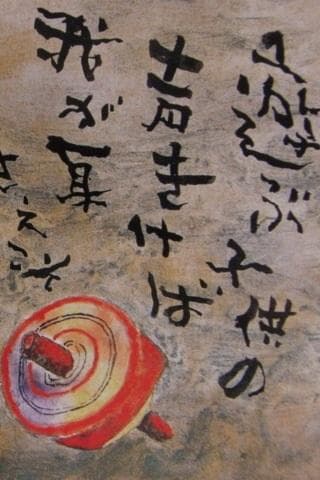 遊ぶ子供の
声きけば
我が身
さえこそ